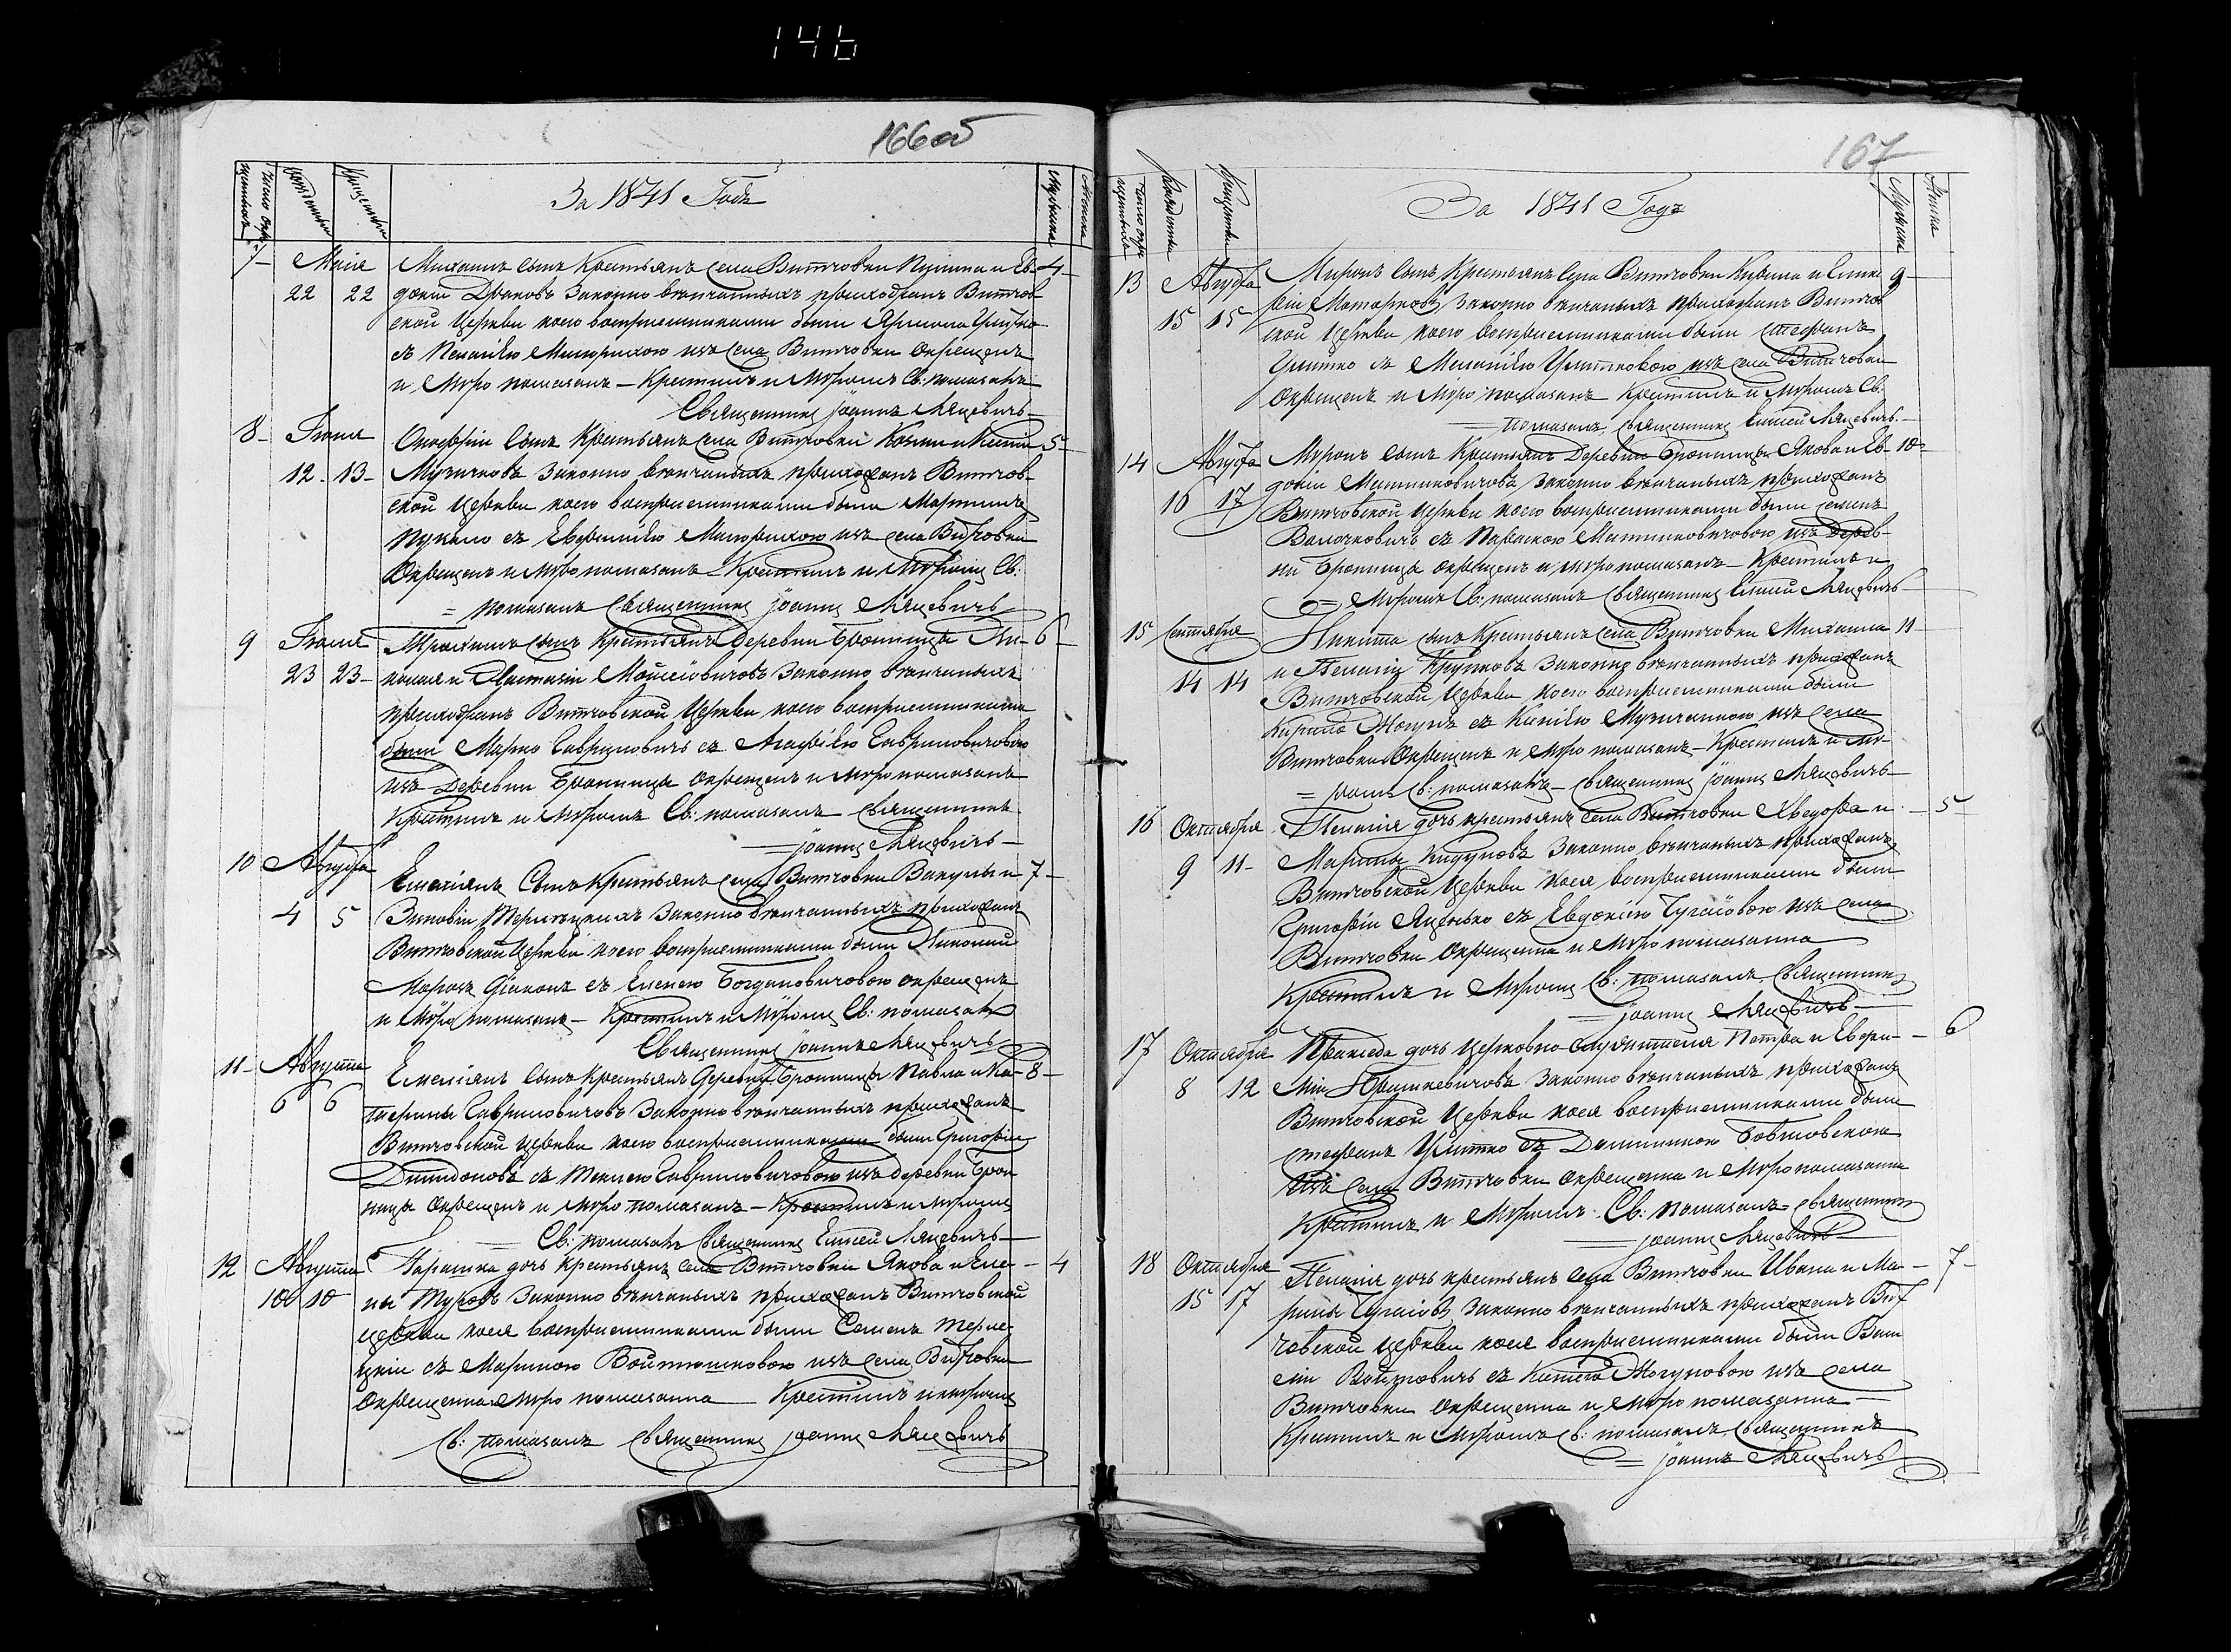 146
166об
Число окре-
щенныхъ
Рожденія
Крещенія
За 1841 Годъ
Мужеска
Женска
7 Маія 22 22 Михаилъ сынъ Крестьянъ села Витчовки и Ев- 4
докіи законно вѣнчанныхъ прихожанъ Витчов-
ской Церкви коего воспріемниками были
съ Пелагіею изъ села Витчовки окрещенъ
и миро помазанъ – Крестилъ и миромъ Св: помазалъ
Священникъ Іоаннъ Ляцевичъ
8 Іюня 12 13 Онофрій сынъ Крестьянъ села Витчовки и 5
законно вѣнчаныхъ прихожанъ Витчов-
ской Церкви коего воспріемниками были Мартинъ
съ Евфиміею изъ села Витчовки
Окрещенъ и миро помазанъ – Крестилъ и миромъ Св:
= помазалъ Священникъ Іоаннъ Ляцевичъ
9 Іюня 23 23 сынъ крестьянъ Деревни Бронницы Ни- 6
колая и Анастасіи Мойсіовичовъ законно вѣнчаныхъ
прихожанъ Витчовской Церкви коего воспріемниками
были Марко Гавриловичъ съ Агафіею Гавриловичовою
изъ Деревни Бронницы окрещенъ и миро помазанъ
Крестилъ и миромъ Св: помазалъ Священникъ
= Іоаннъ Ляцевичъ
10 Августа 4 5 Емеліянъ сынъ Крестьянъ села Витчовки Вакулы и 7
Зиновіи Терлецкихъ законно вѣнчанныхъ прихожанъ
Витчовской Церкви коего воспріемниками были Николай
Мороз діаконъ съ Еленою Богдановичовою окрещенъ
и миро помазанъ – Крестилъ и миромъ Св: помазалъ
Священникъ Іоаннъ Ляцевичъ
11 Августа 6 6 Емеліянъ сынъ крестьянъ деревни Бронницы Павла и Ка- 8
терины Гавриловичовъ законно вѣнчанныхъ прихожанъ
Витчовской Церкви коего воспріемниками были Григорій
съ Теклею Гавриловичовою изъ деревни Брон-
ницы окрещенъ и миро помазанъ – Крестилъ и миромъ
Св: помазалъ Священникъ Елисей Ляцевичъ
12 Августа 10 10 Парашка дочь крестьянъ села Витчовки Якова и Еле- 4
ны законно вѣнчаныхъ прихожанъ Витчовской
Церкви коея воспріемниками были Семенъ Терле-
цкій съ Мариною изъ села Витчовки
Окрещенна и миро помазанна – Крестилъ и миромъ
Св: помазалъ Священникъ Іоаннъ Ляцевичъ
167
Число окре-
щенныхъ
Рожденія
Крещенія
За 1841 Годъ
Мужеска
Женска
13 Августа 15 15 Миронъ сынъ Крестьянъ села Витчовки и 9
законно вѣнчаныхъ прихожанъ Витчов-
ской Церкви коего воспріемниками были Стефанъ
съ Меланіею изъ села Витчовки
Окрещенъ и миро помазанъ Крестилъ и миромъ Св:
= помазалъ Священникъ Елисей Ляцевичъ
14 Августа 16 17 Миронъ сынъ Крестьянъ Деревни Бронницы Якова и Ев- 10
докіи законно вѣнчаныхъ прихожанъ
Витчовской Церкви коего воспріемниками были Семенъ
съ Параскою изъ Дерев-
ни Бронница окрещенъ и миро помазанъ – Крестилъ и
= миромъ Св: помазалъ Священникъ Елисей Ляцевичъ
15 Сентября 14 14 Никита сынъ Крестьянъ села Витчовки Михаила 11
и Пелагіи законно вѣнчанныхъ прихожанъ
Витчовской Церкви коего воспріемниками были
Кирило съ изъ села
Витчовки Окрещенъ и миро помазанъ – Крестилъ и ми-
= ромъ Св: помазалъ – Священникъ Іоаннъ Ляцевичъ
16 Октября 9 11 Пелагія дочь крестьянъ села Витчовки Хведора и 5
Марины законно вѣнчаныхъ прихожанъ
Витчовской Церкви коея воспріемниками были
Григорій съ Евдокіею Чугаіовою изъ села
Витчовки Окрещенна и миро помазанна
Крестилъ и миромъ Св: помазалъ Священникъ
= Іоаннъ Ляцевичъ
17 Октября 8 12 Праксѣда дочь Церковно-служителя Петра и Евфи- 6
міи законно вѣнчаныхъ прихожанъ
Витчовской Церкви коея воспріемниками были
Стефанъ съ Доминикою
изъ села Витчовки окрещенна и миро помазанна
Крестилъ и миромъ Св: помазалъ – Священникъ
= Іоаннъ Ляцевичъ
18 Октября 15 17 Пелагія дочь крестьянъ села Витчовки Ивана и Ма- 7
рины законно вѣнчанныхъ прихожанъ Вит-
човской Церкви коея воспріемниками были
съ изъ села
Витчовки окрещенна и миро помазанна
Крестилъ и миромъ Св: помазалъ Священникъ
= Іоаннъ Ляцевичъ